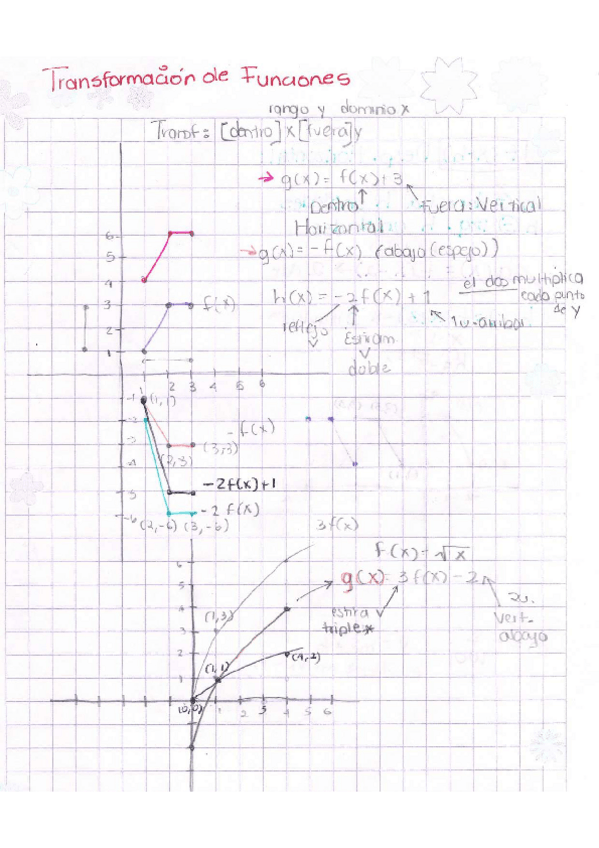 Transformación de Funciones
rango y dominio x
Transf: [dentro] x [fuera] y
→ g(x) = f(x) + 3
Dentro
Fuera: Vertical
Horizontal
→ g(x) = -f(x) (abajo (espejo))
h(x) = -2f(x) + 1
el dos multiplica
cada punto
de y
reflejo
v
Estiram
v
doble
1u. arriba.
6
5
4
3
2
1
f(x)
1 2 3 4 5 6
-1
-2
-3
-4
-5
-6
(1,1)
-f(x)
(3,3)
(2,3)
-2f(x)+1
-2 f(x)
(2,-6) (3,-6)
3f(x)
f(x) = √x
g(x) = 3f(x) - 2
estira v
triple
2u.
vert.
abajo
6
5
4
3
2
(1,3)
(1,1)
(4,2)
(0,0)
1 2 3 4 5 6